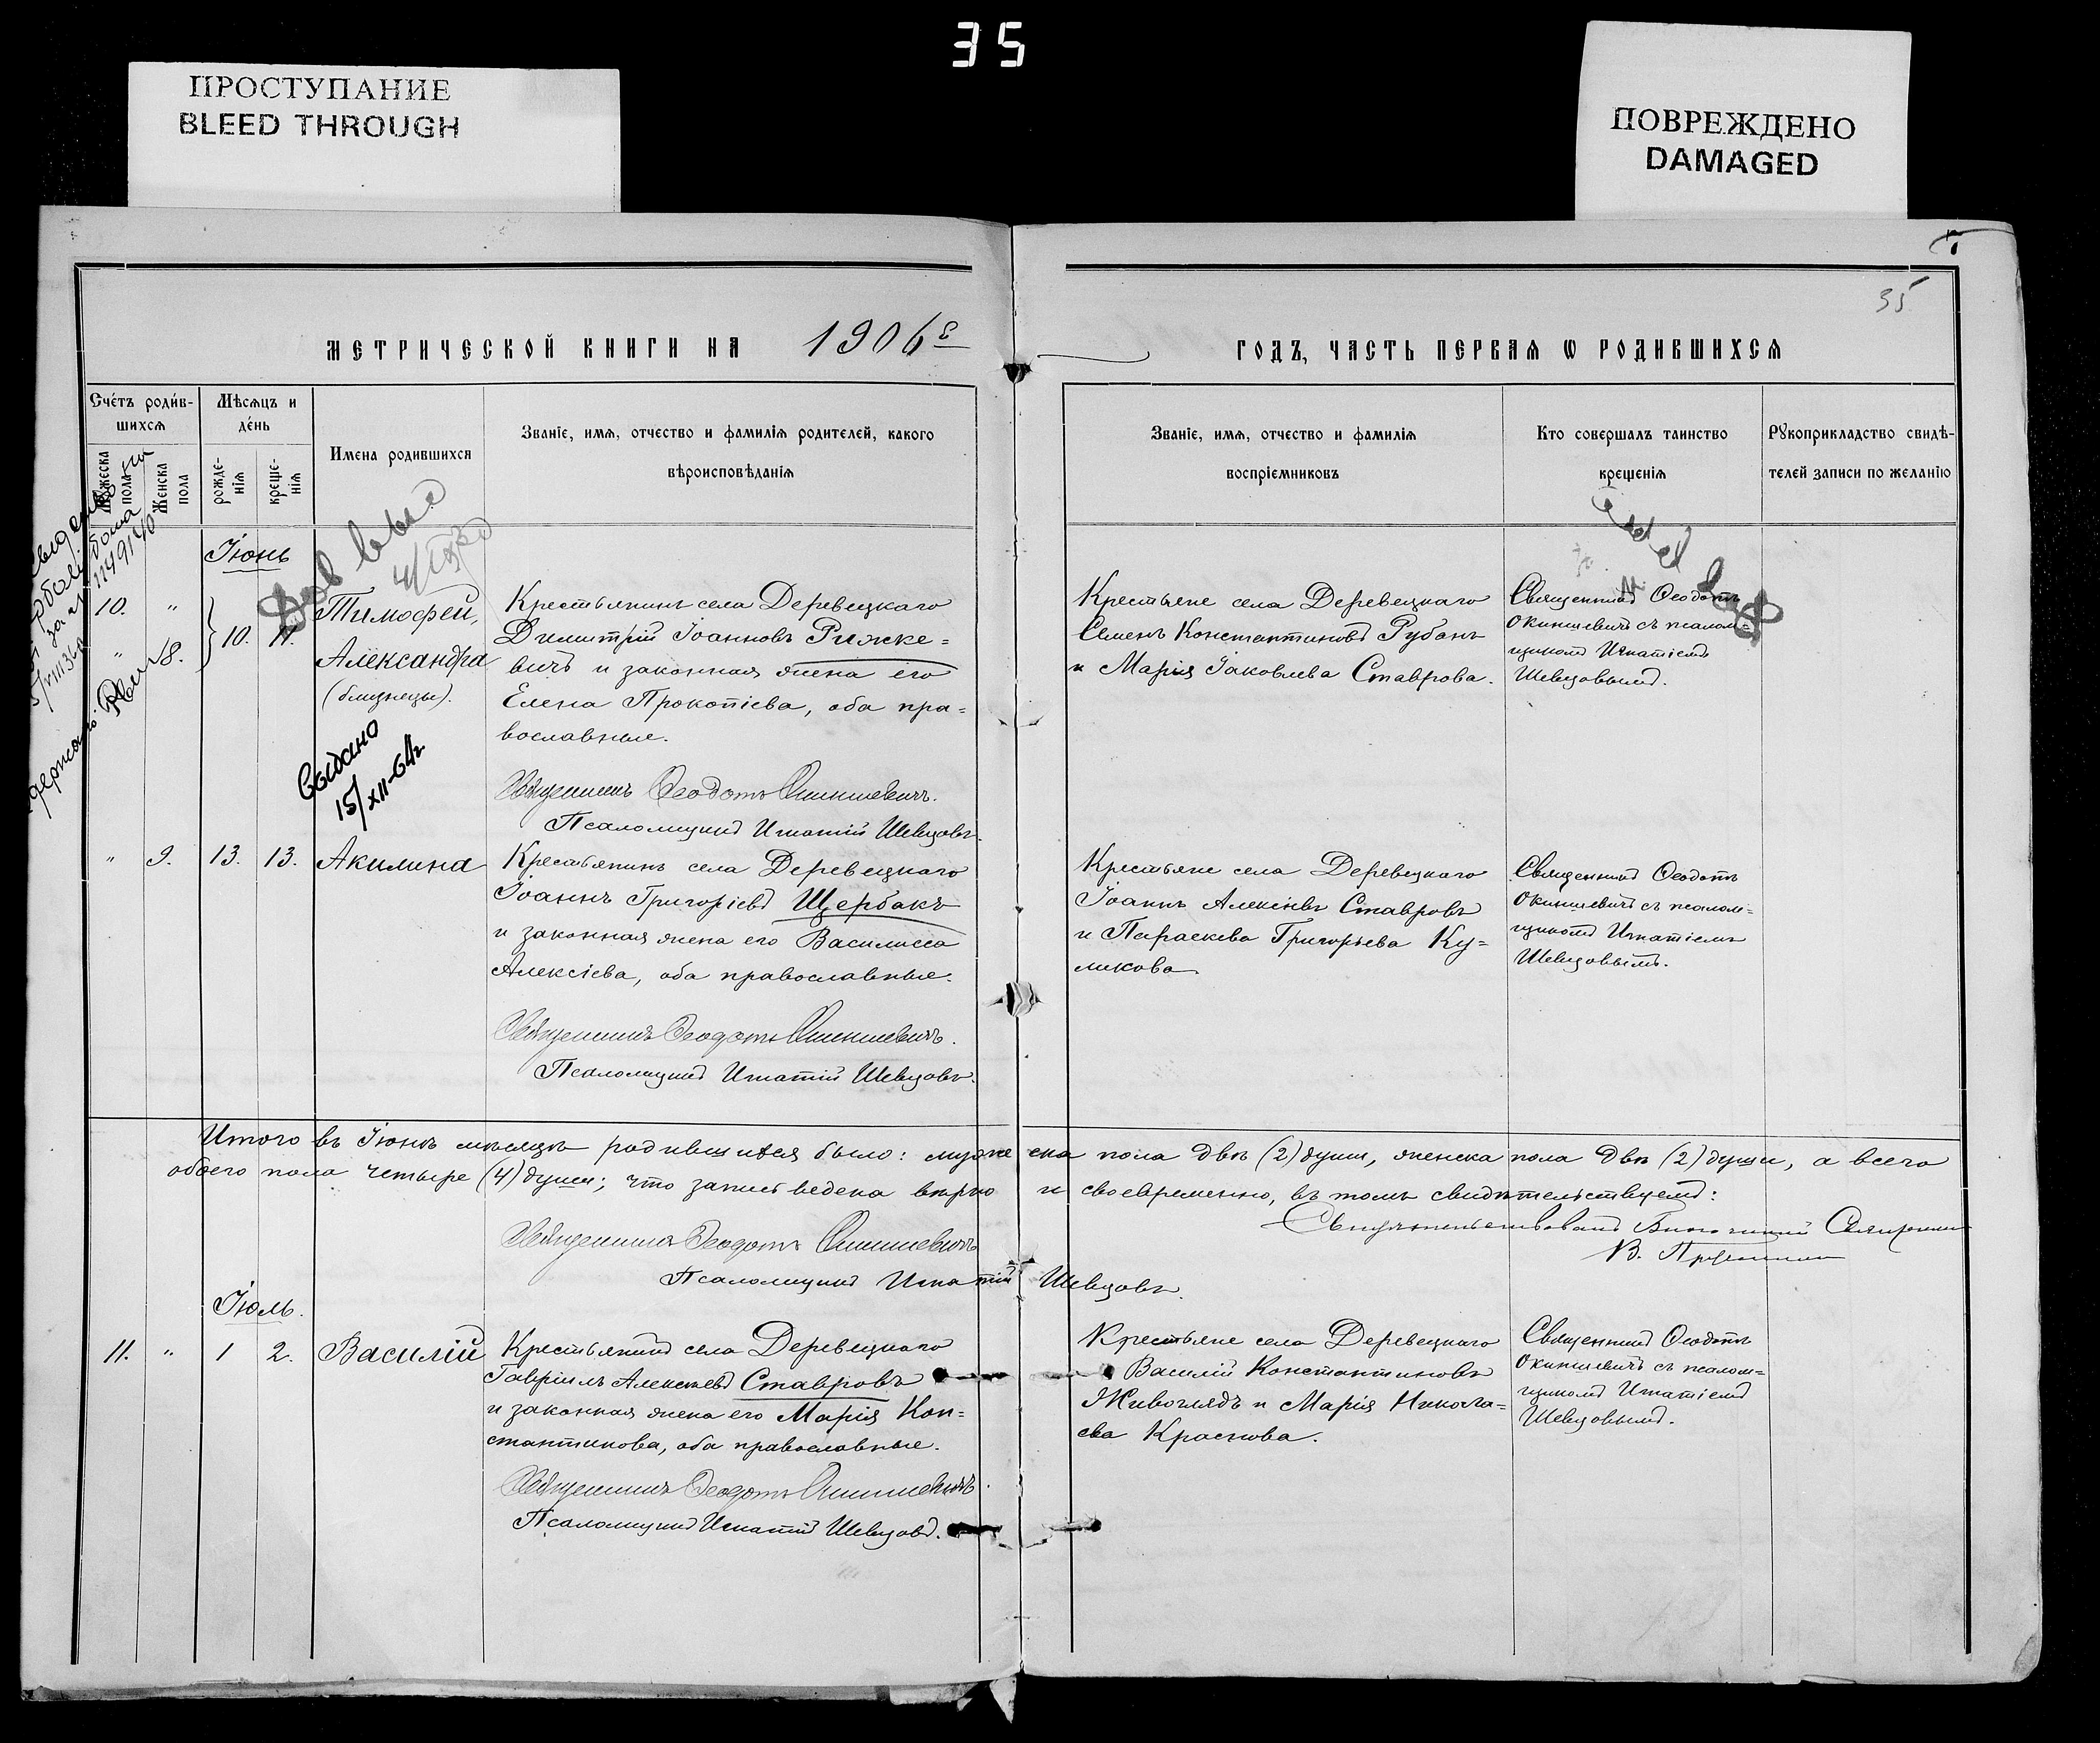 35
ПРОСТУПАНИЕ
BLEED THROUGH
ПОВРЕЖДЕНО
DAMAGED
35
МЕТРИЧЕСКОЙ КНИГИ НА 1906й
ГОДЪ, ЧАСТЬ ПЕРВАЯ Ѡ РОДИВШИХСЯ
Счетъ родив-
шихся
Мѣсяцъ и
день
Имена родившихся
Званіе, имя, отчество и фамилія родителей, какого
вѣроисповѣданія
Мужеска
пола
Женска
пола
рожде-
нія
креще-
нія
Званіе, имя, отчество и фамилія
воспріемниковъ
Кто совершалъ таинство
крещенія
Рукоприкладство свидѣ-
телей записи по желанію
Іюнь
10. "
" 8.
10. 11.
Тимофей,
Александра
(близнецы).
Выдано
15/XII-64г
Крестьянинъ села Деревецкаго
Димитрій Іоанновъ Рижке=
вичъ и законная жена его
Елена Прокопіева, оба пра=
вославные.
Священникъ Ѳеодотъ Окиншевичъ.
Псаломщикъ Игнатій Шевцовъ.
Крестьяне села Деревецкаго
Семенъ Константиновъ Рубанъ
и Марія Іаковлева Ставрова.
Священникъ Ѳеодотъ
Окиншевичъ съ псалом=
щикомъ Игнатіемъ
Шевцовымъ.
" 9. 13. 13. Акилина
Крестьянинъ села Деревецкаго
Іоаннъ Григоріевъ Щербакъ
и законная жена его Василисса
Алексіева, оба православные.
Священникъ Ѳеодотъ Окиншевичъ.
Псаломщикъ Игнатій Шевцовъ.
Крестьяне села Деревецкаго
Іоаннъ Алексіевъ Ставровъ
и Параскева Григорьева Ку=
ликова
Священникъ Ѳеодотъ
Окиншевичъ съ псалом=
щикомъ Игнатіемъ
Шевцовымъ.
Итого въ Іюнѣ мѣсяцѣ родившихся было: мужеска пола двѣ (2) души, женска пола двѣ (2) души, а всего
обоего пола четыре (4) души; что запись ведена вѣрно и своевременно, въ томъ свидѣтельствуемъ:
Священникъ Ѳеодотъ Окиншевичъ
Псаломщикъ Игнатій Шевцовъ.
Свидѣтельствовалъ Благочинный Священникъ
В.
Іюль.
11. " 1 2. Василій
Крестьянинъ села Деревецкаго
Гавріилъ Алексѣевъ Ставровъ
и законная жена его Марія Кон=
стантинова, оба православные.
Священникъ Ѳеодотъ Окиншевичъ.
Псаломщикъ Игнатій Шевцовъ.
Крестьяне села Деревецкаго
Василій Константиновъ
Живоглядъ и Марія Никола=
ева Краснова.
Священникъ Ѳеодотъ
Окиншевичъ съ псалом=
щикомъ Игнатіемъ
Шевцовымъ.